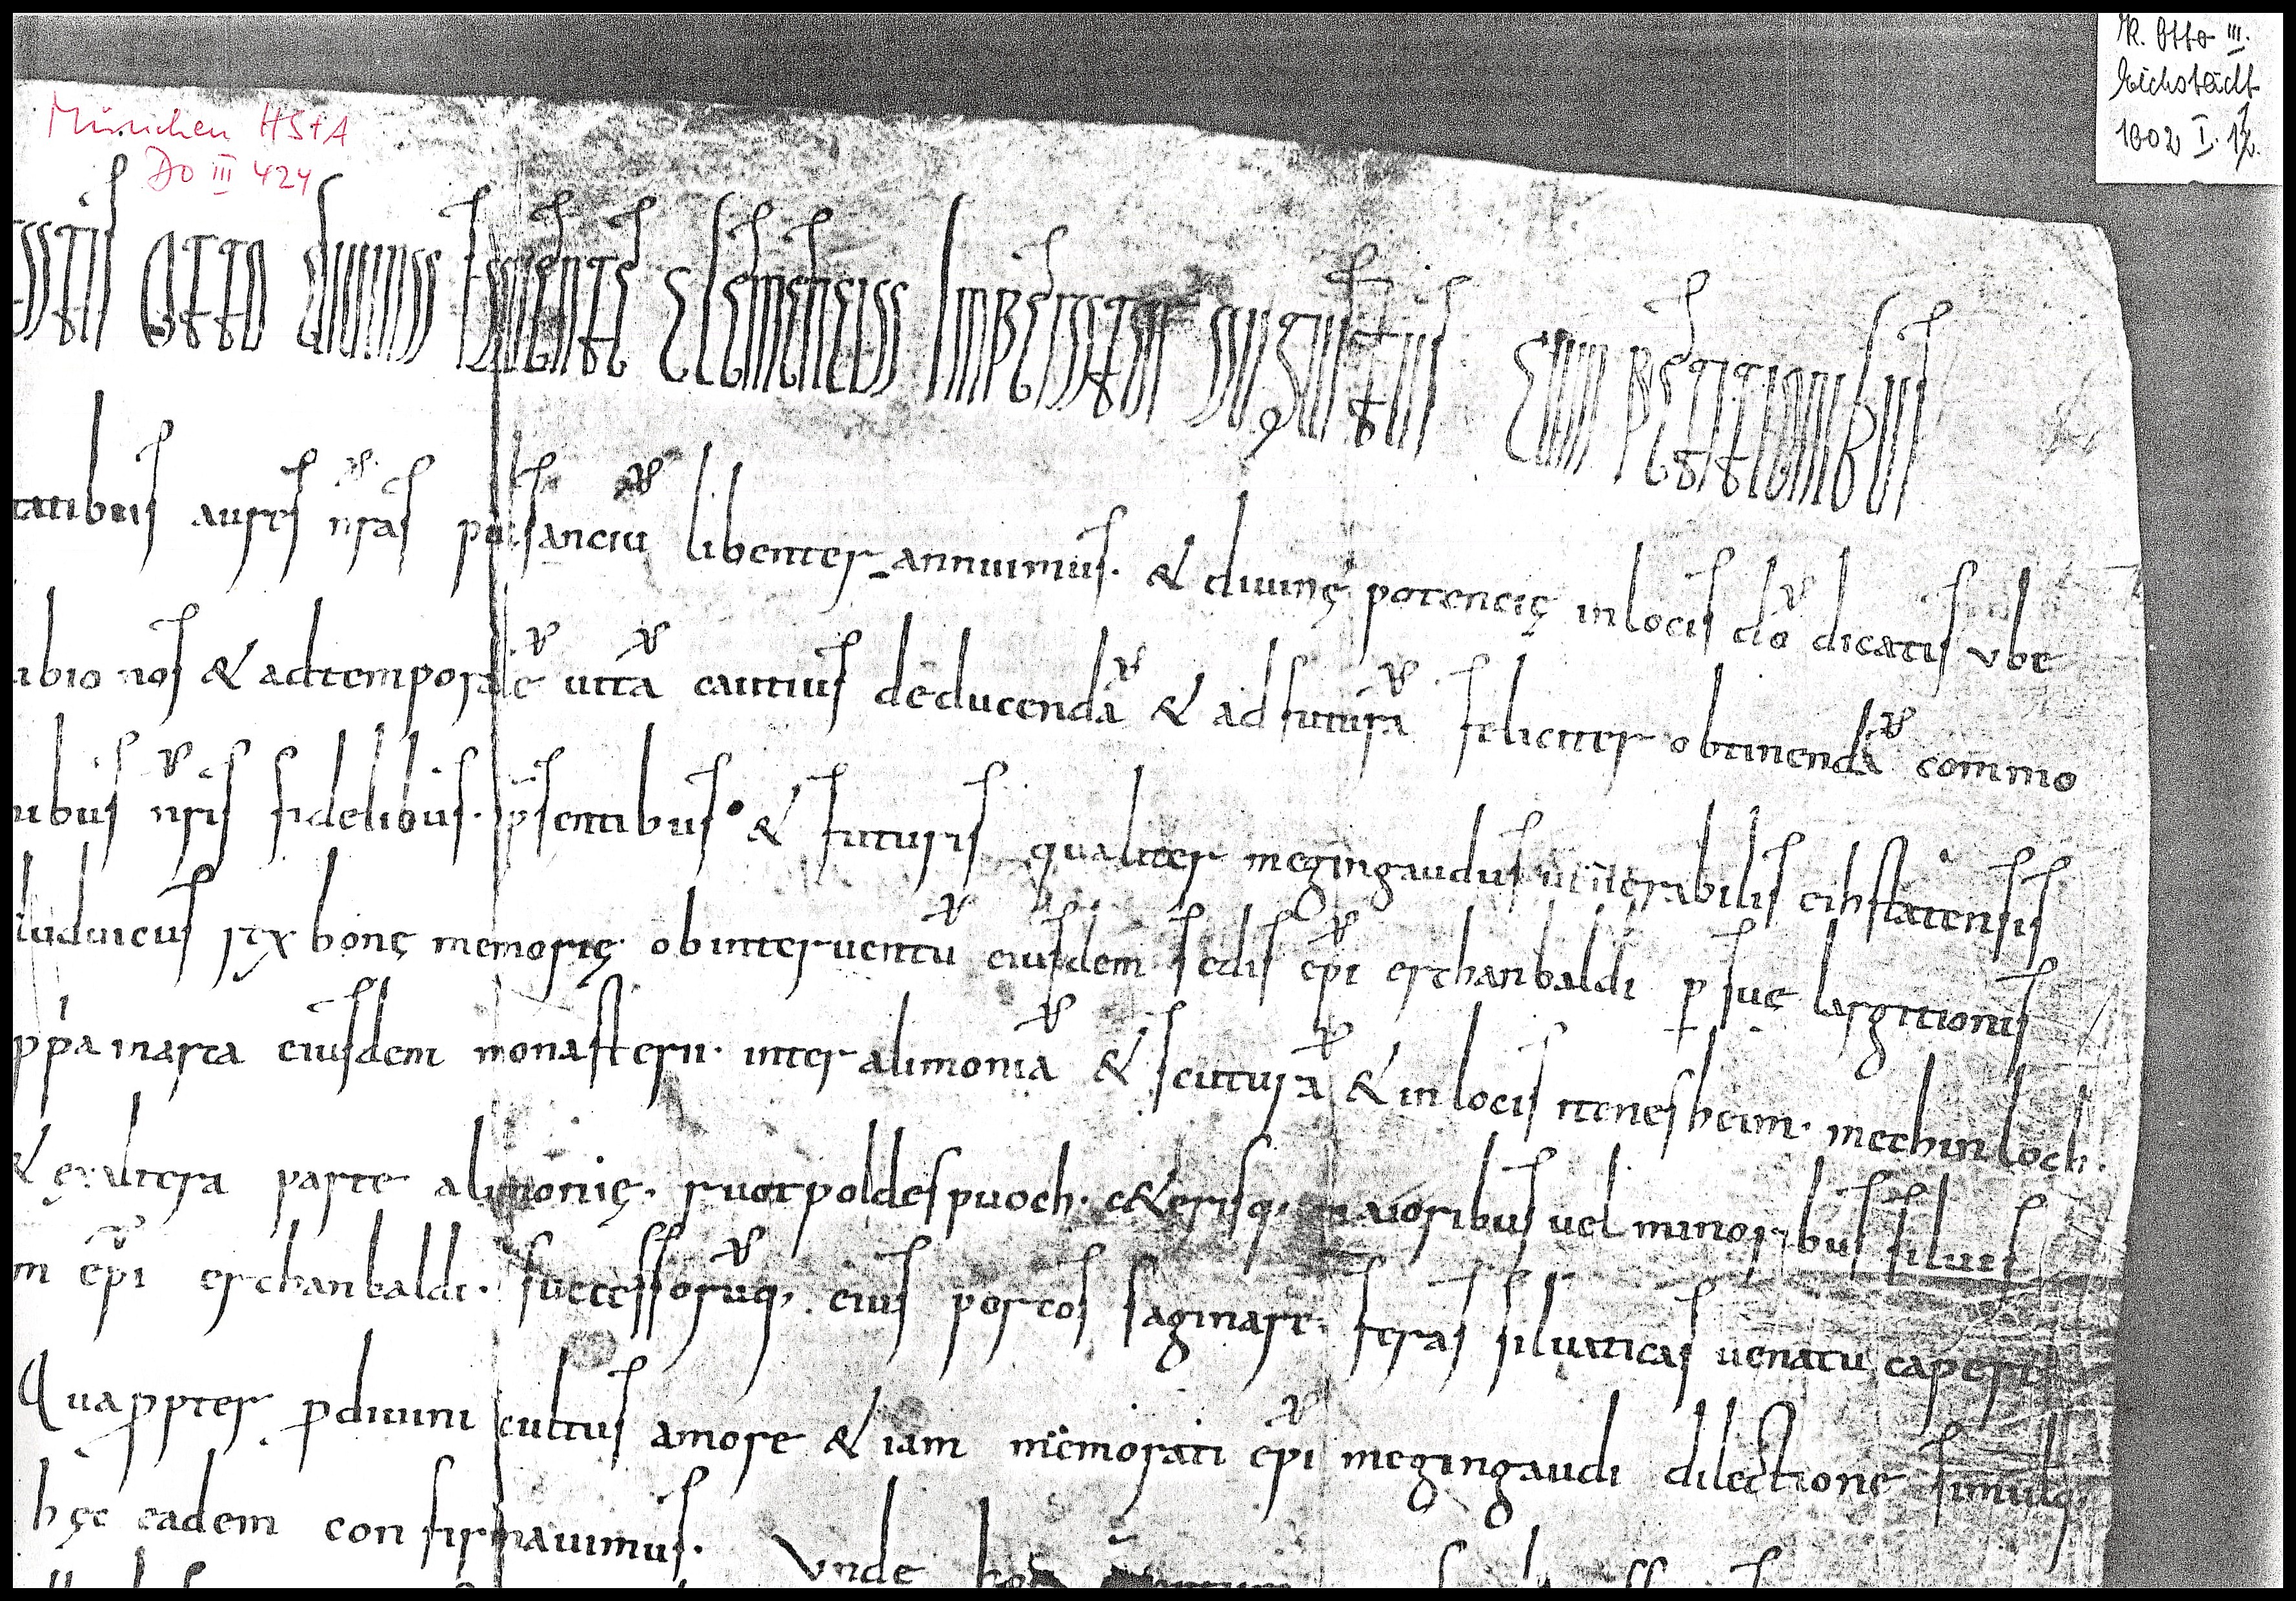 K. Otto III.
Eichstädt
1002 I. 12.
München HStA
DO III 424
OTTO divina favente clementia imperator augustus Cum petitionibus
aures nr̃as pulsanciũ libenter annuimus. & diuinę potencię in locis dõ dicatis vbe
nos & ad temporalẽ uitã cautius deducendã & ad futurã feliciter obtinendã commo
nr̃is fidelibus. p̃sentibus & futuris qualiter megingaudus uenerabilis eihstatensis
luduuicus rex bonę memorię ob interuentũ eiusdem sedis ep̃i erchanbaldi p suę largitionis
eiusdem monasterii. inter alimoniã & scuturã & in locis
& ex altera parte alimonię. ruotpoldespuoch. c&erisq; maioribus uel minoribus siluis
m ep̃i erchanbaldi. successorũq; eius porcos saginare. feras siluaticas uenatu capere
Quappter p diuini cultus amore & iam memorati ep̃i megingaudi dilectione simulq;
hęc eadem confirmauimus. Vnde